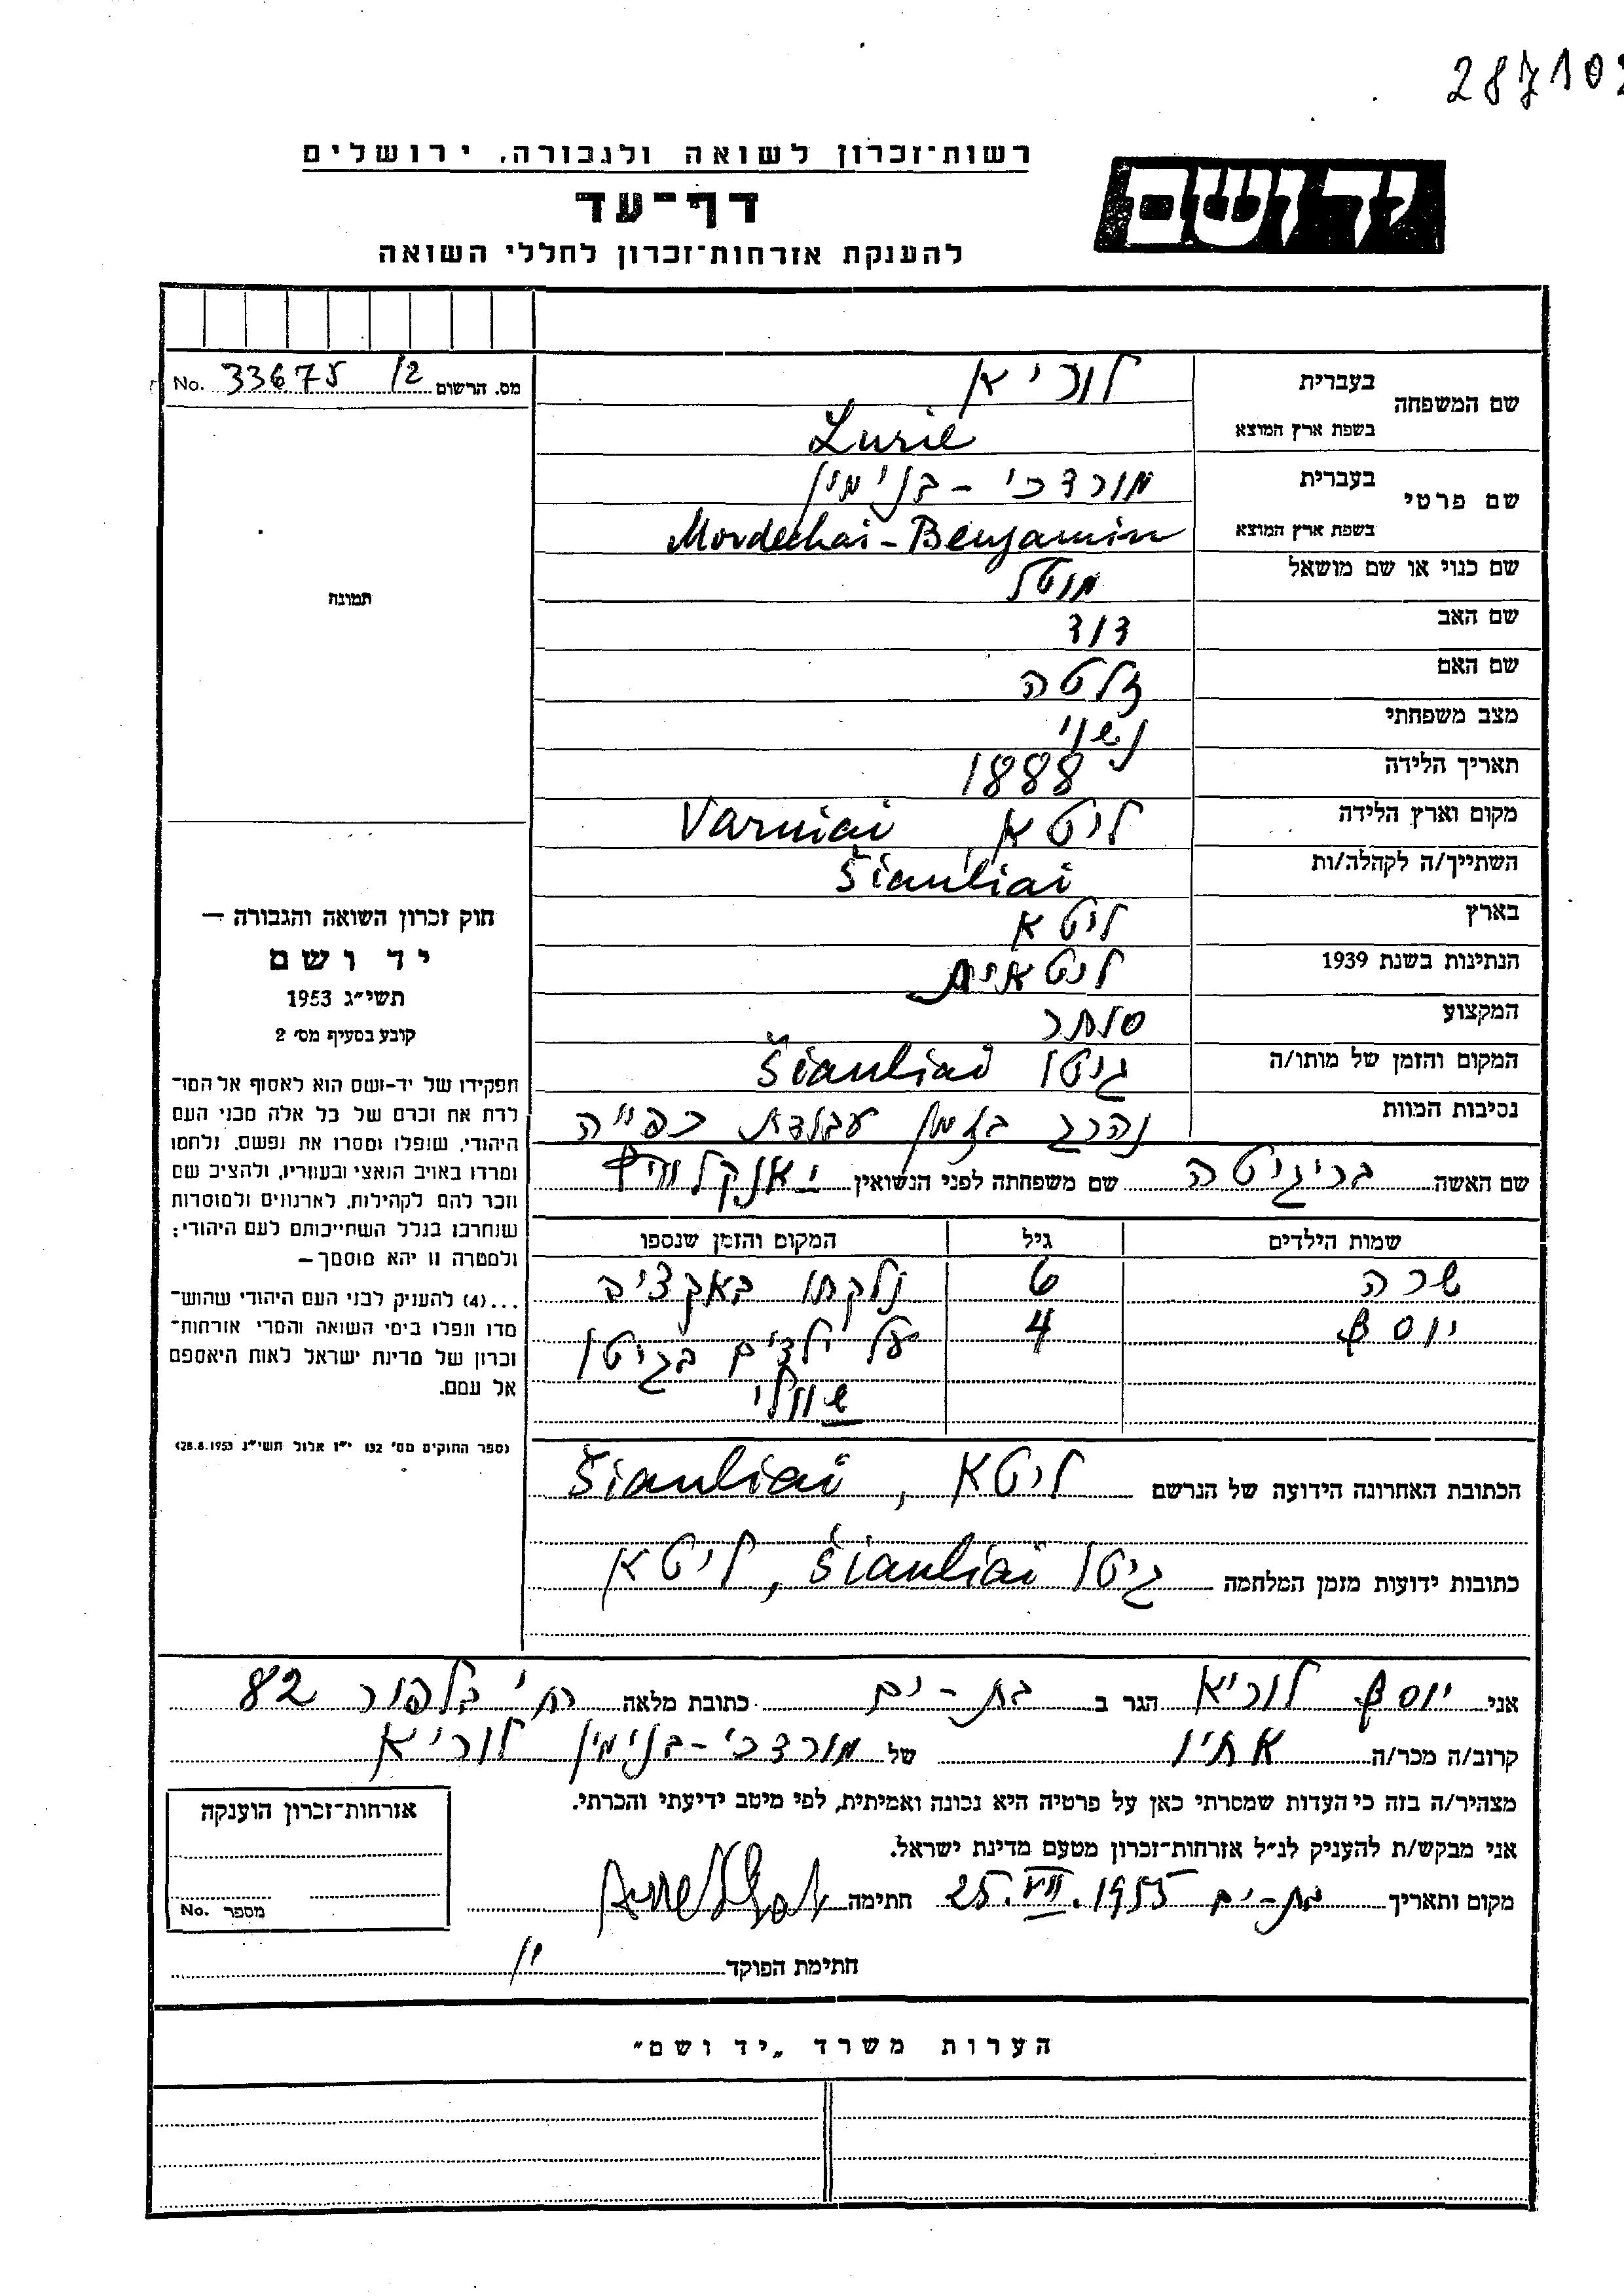 287102
רשות־זכרון לשואה ולגבורה, ירושלים
יד ושם
דף־עד
להענקת אזרחות־זכרון לחללי השואה
מס. הרשום 33675 /2 No.
שם המשפחה בעברית לוריא
בשפת ארץ המוצא Lurie
שם פרטי בעברית מורדכי - בנימין
בשפת ארץ המוצא Mordechai - Benjamin
שם כנוי או שם מושאל מוטל
שם האב דוד
שם האם זלטה
מצב משפחתי נשוי
תאריך הלידה 1888
מקום וארץ הלידה ליטא, Varniai
השתייך/ה לקהלה/ות Šiauliai
בארץ ליטא
הנתינות בשנת 1939 ליטאית
המקצוע סוחר
המקום והזמן של מותו/ה גיטו Šiauliai
נסיבות המוות נהרג בזמן עבודת כפייה
שם האשה בריגיטה שם משפחתה לפני הנשואין
שמות הילדים גיל המקום והזמן שנספו
שרה 6 נלקחו באקציה
יוסף 4 על ילדים בגיטו
שוולי
הכתובת האחרונה הידועה של הנרשם ליטא, Šiauliai
כתובות ידועות מזמן המלחמה גיטו Šiauliai, ליטא
תמונה
חוק זכרון השואה והגבורה —
יד ושם
תשי״ג 1953
קובע בסעיף מס׳ 2
תפקידו של יד-ושם הוא לאסוף אל המו־
לדת את זכרם של כל אלה מבני העם
היהודי, שנפלו ומסרו את נפשם, נלחמו
ומרדו באויב הנאצי ובעוזריו, ולהציב שם
וזכר להם לקהילות, לארגונים ולמוסדות
שנחרבו בגלל השתייכותם לעם היהודי;
ולמטרה זו יהא מוסמך —
...(4) להעניק לבני העם היהודי שהוש־
מדו ונפלו בימי השואה והמרי אזרחות־
זכרון של מדינת ישראל לאות היאספם
אל עמם.
(ספר החוקים מס׳ 132 י״ז אלול תשי״ג 28.8.1953)
אני יוסף לוריא הגר ב בת-ים כתובת מלאה רח׳ בלפור 82
קרוב/ה מכר/ה אחיו של מורדכי-בנימין לוריא
מצהיר/ה בזה כי העדות שמסרתי כאן על פרטיה היא נכונה ואמיתית, לפי מיטב ידיעתי והכרתי.
אני מבקש/ת להעניק לנ״ל אזרחות־זכרון מטעם מדינת ישראל.
מקום ותאריך בת-ים 25.VII.1955 חתימה
חתימת הפוקד
אזרחות־זכרון הוענקה
מספר No.
הערות משרד „יד ושם״